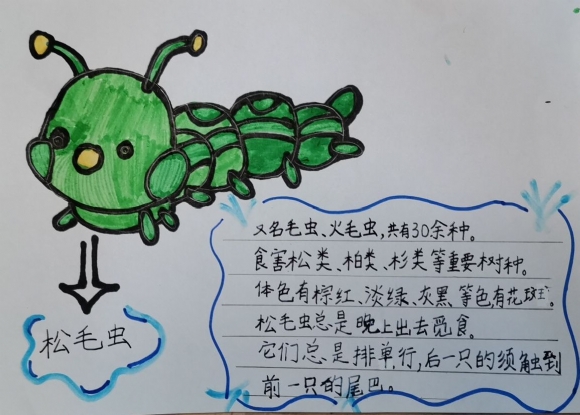 又名毛虫、火毛虫,共有30余种。
食害松类、柏类、杉类等重要树种。
体色有棕红、淡绿、灰黑等色有花斑。
松毛虫总是晚上出去觅食。
它们总是排单行,后一只的须触到
前一只的尾巴。
松毛虫